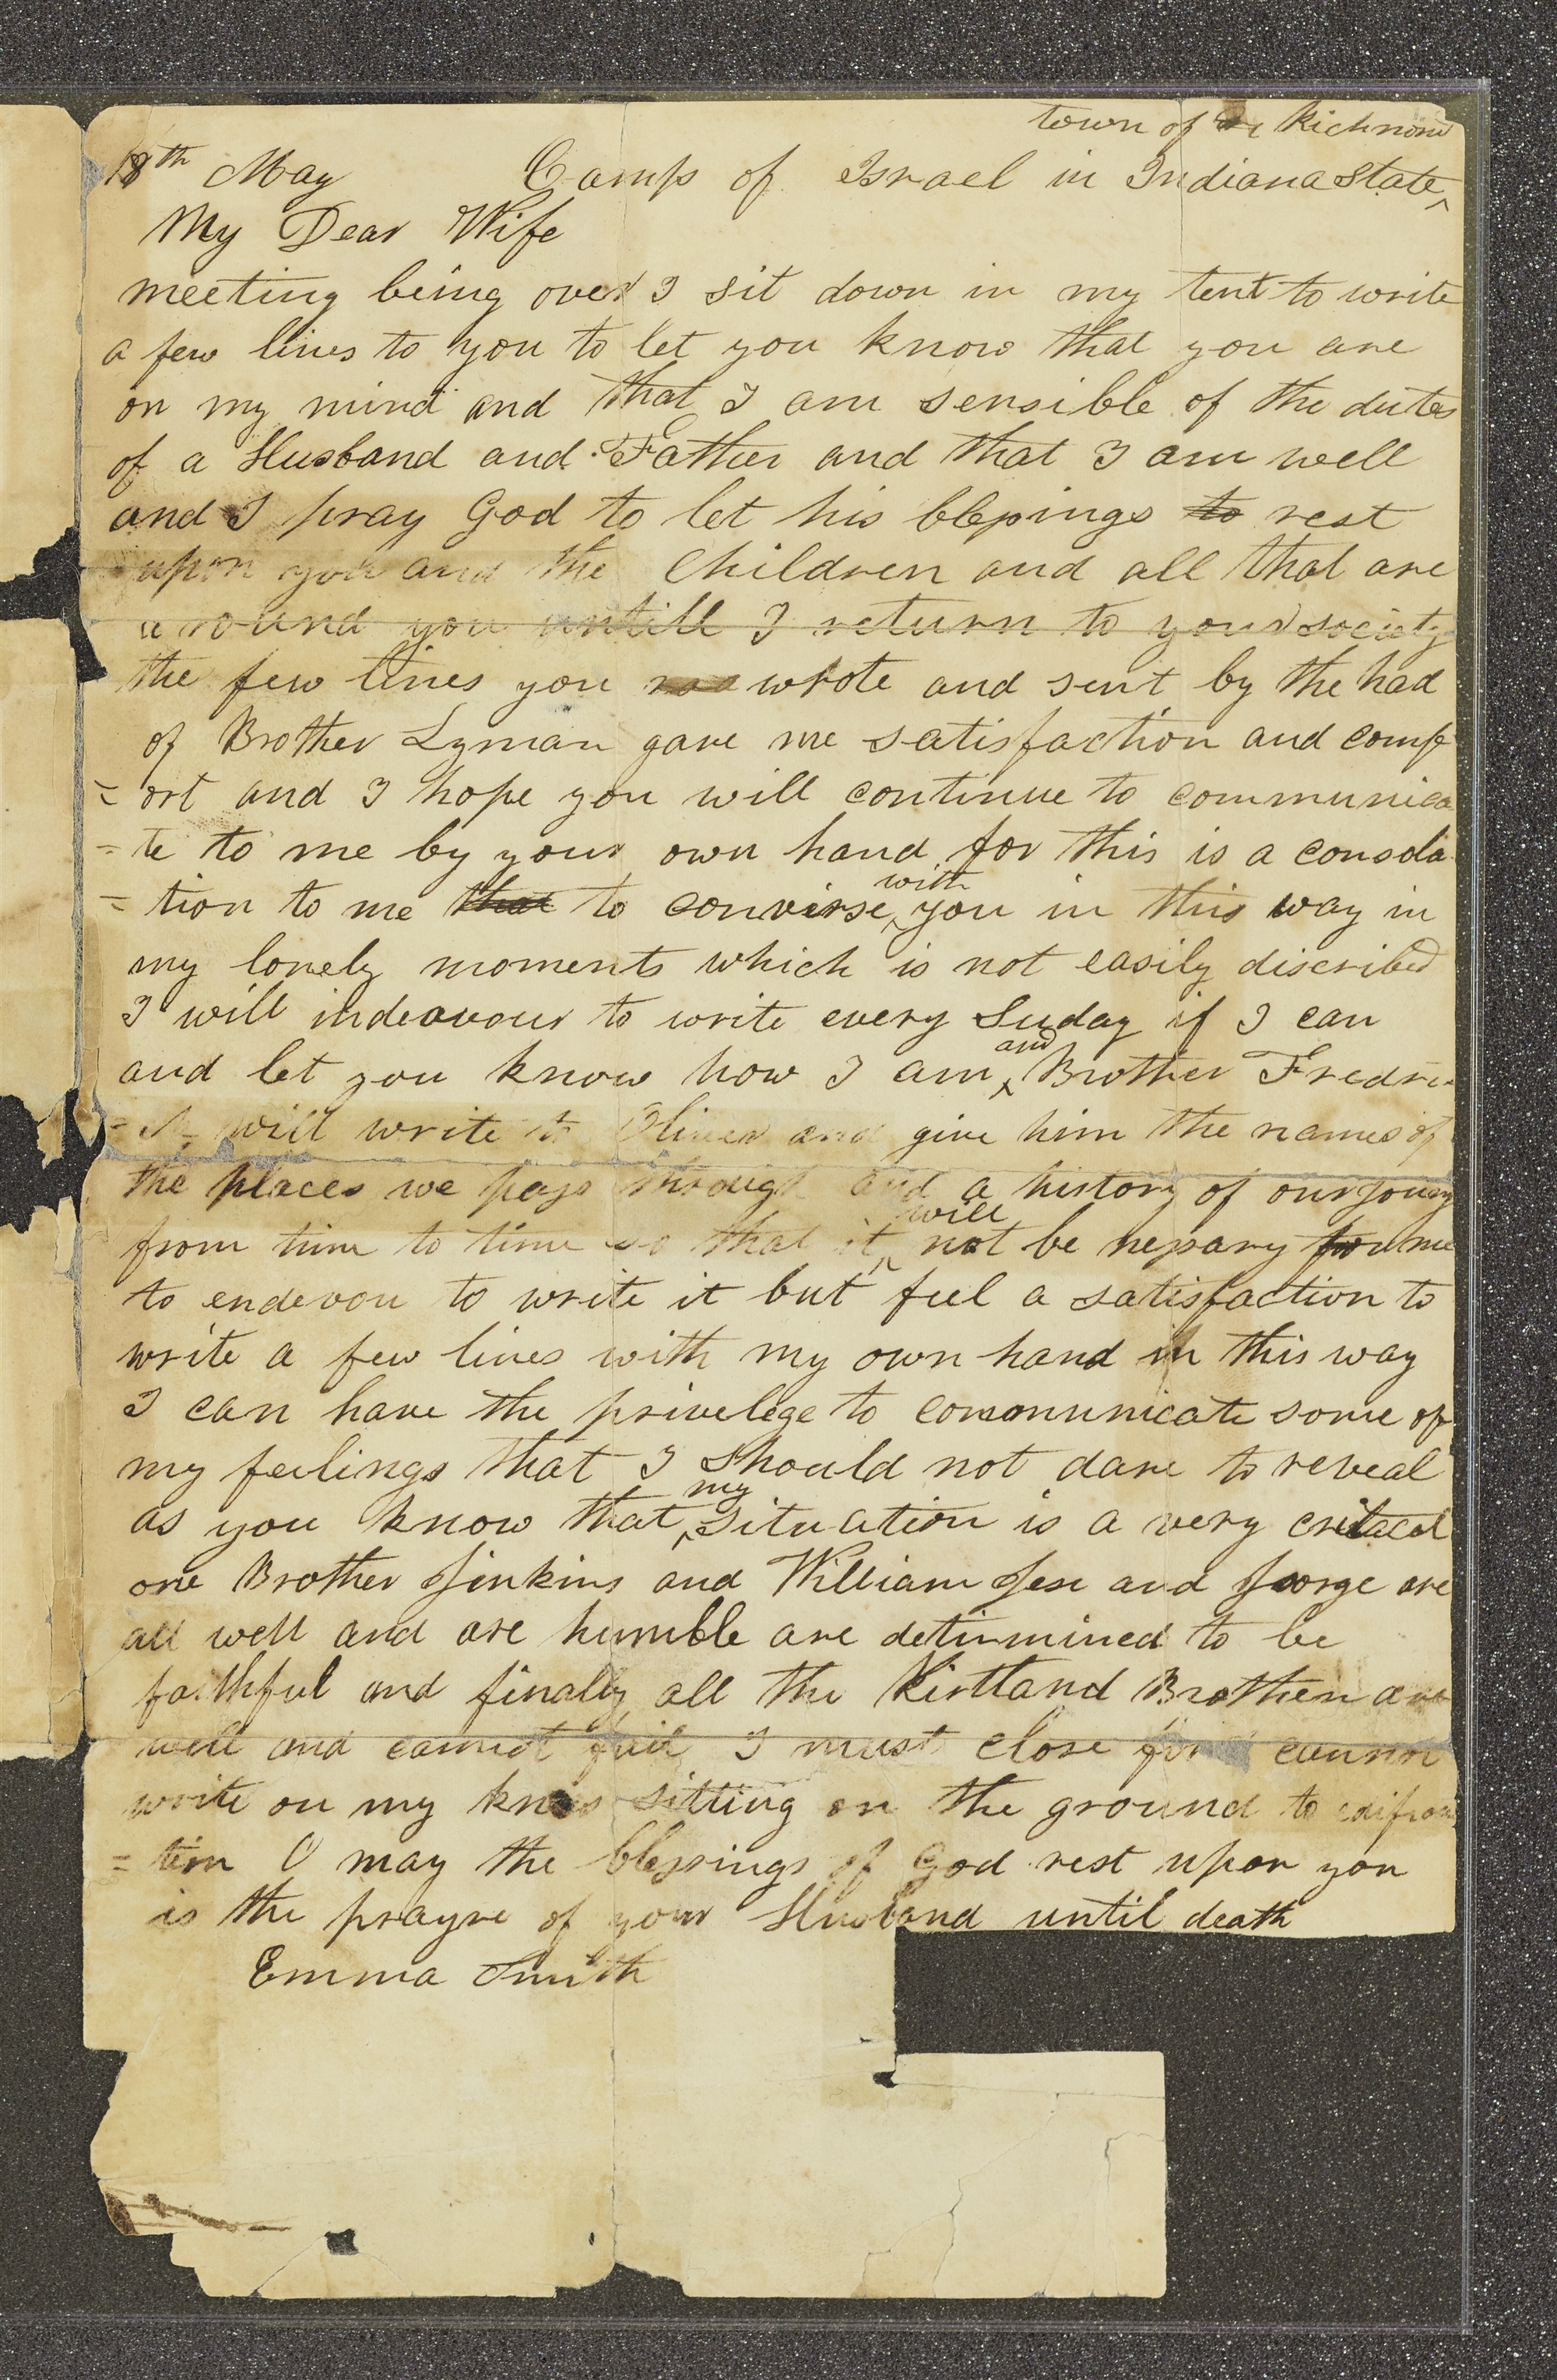 town of Richmond
18th May Camp of Israel in Indiana State
My Dear Wife
meeting being over I sit down in my tent to write
a few lines to you to let you know that you are
on my mind and that I am sensible of the duties
of a Husband and Father and that I am well
and I pray God to let his blessings to rest
upon you and the Children and all that are
around you untill I return to your society
the few lines you wrote and sent by the had
of Brother Lyman gave me satisfaction and comf
= ort and I hope you will continue to communica
= te to me by your own hand for this is a consola
= tion to me that to converse with you in this way in
my lonely moments which is not easily discribed
I will indeavour to write every Suday if I can
and let you know how I am and Brother Fredri
= k will write to Oliver and give him the names of
the places we pass through and a history of our jouny
from time to time so that it will not be nessary for me
to endevou to write it but feel a satisfaction to
write a few lines with my own hand in this way
I can have the privelege to communicate some of
my feelings that I should not dare to reveal
as you know that my situation is a very critacal
one Brother Jinkins and William Jese and George are
all well and are humble are detirmined to be
faithful and finally all the Kirtland Brothen are
well and cannot fail I must close for I cannot
write on my knees sitting on the ground to edifica
= tion O may the blessings of God rest upon you
is the prayre of your Husband until death
Emma Smith